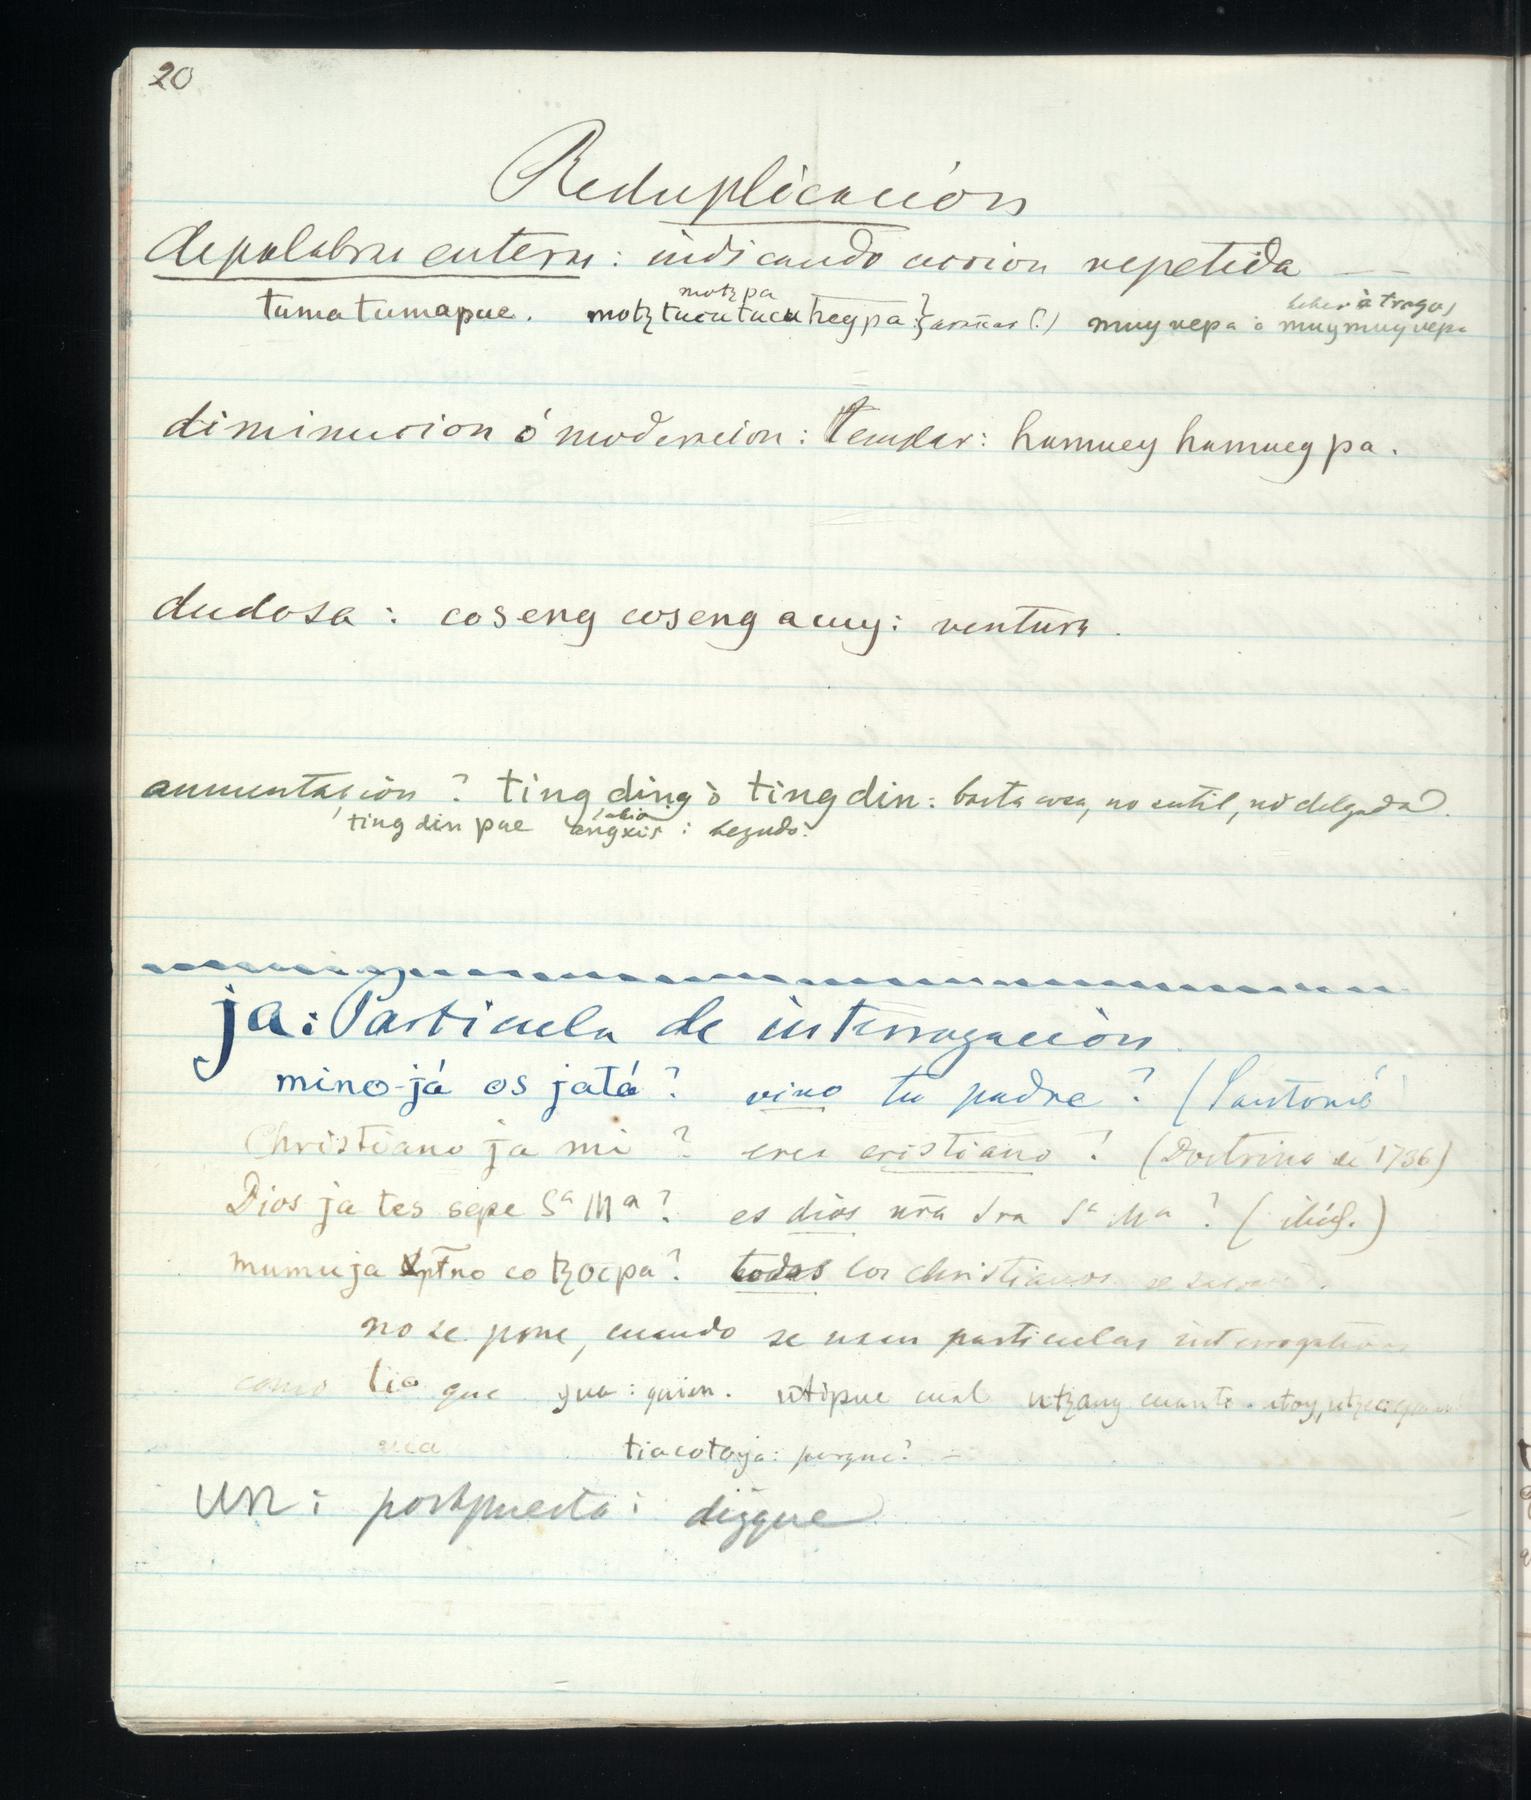 20
Reduplicación
de palabra entera: indicando accion repetida — —
motzpa
beber à tragos
tumatumapue. motztucutucuhegpa } muyvepa ò muymuyvepa
diminucion ó moderacion: Templar: humuey humuegpa.
dudosa: coseng coseng acuy: ventura.
aumentación? ting ding ò tingdin: basta cosa, no sutil, nò delgada.
labio
tingdin pue angxis: bezudo.
ja: Particula de interrogación
mino-já os jatá? vino tu padre? (Santomé)
Christiano ja mi? eres cristiano? (Doctrina de 1736)
Dios ja tes sepe Sa Ma? es dios nra Sra Sa Ma? (ibid.)
mumuja Xptno cotzocpa? todos los christianos se salvan?
no se pone, cuando se usan particulas interrogativas
como tia que yua: quien. utipue cual utzang cuanto.
tiacotoya: porque? —
un: postpuesta: dizque